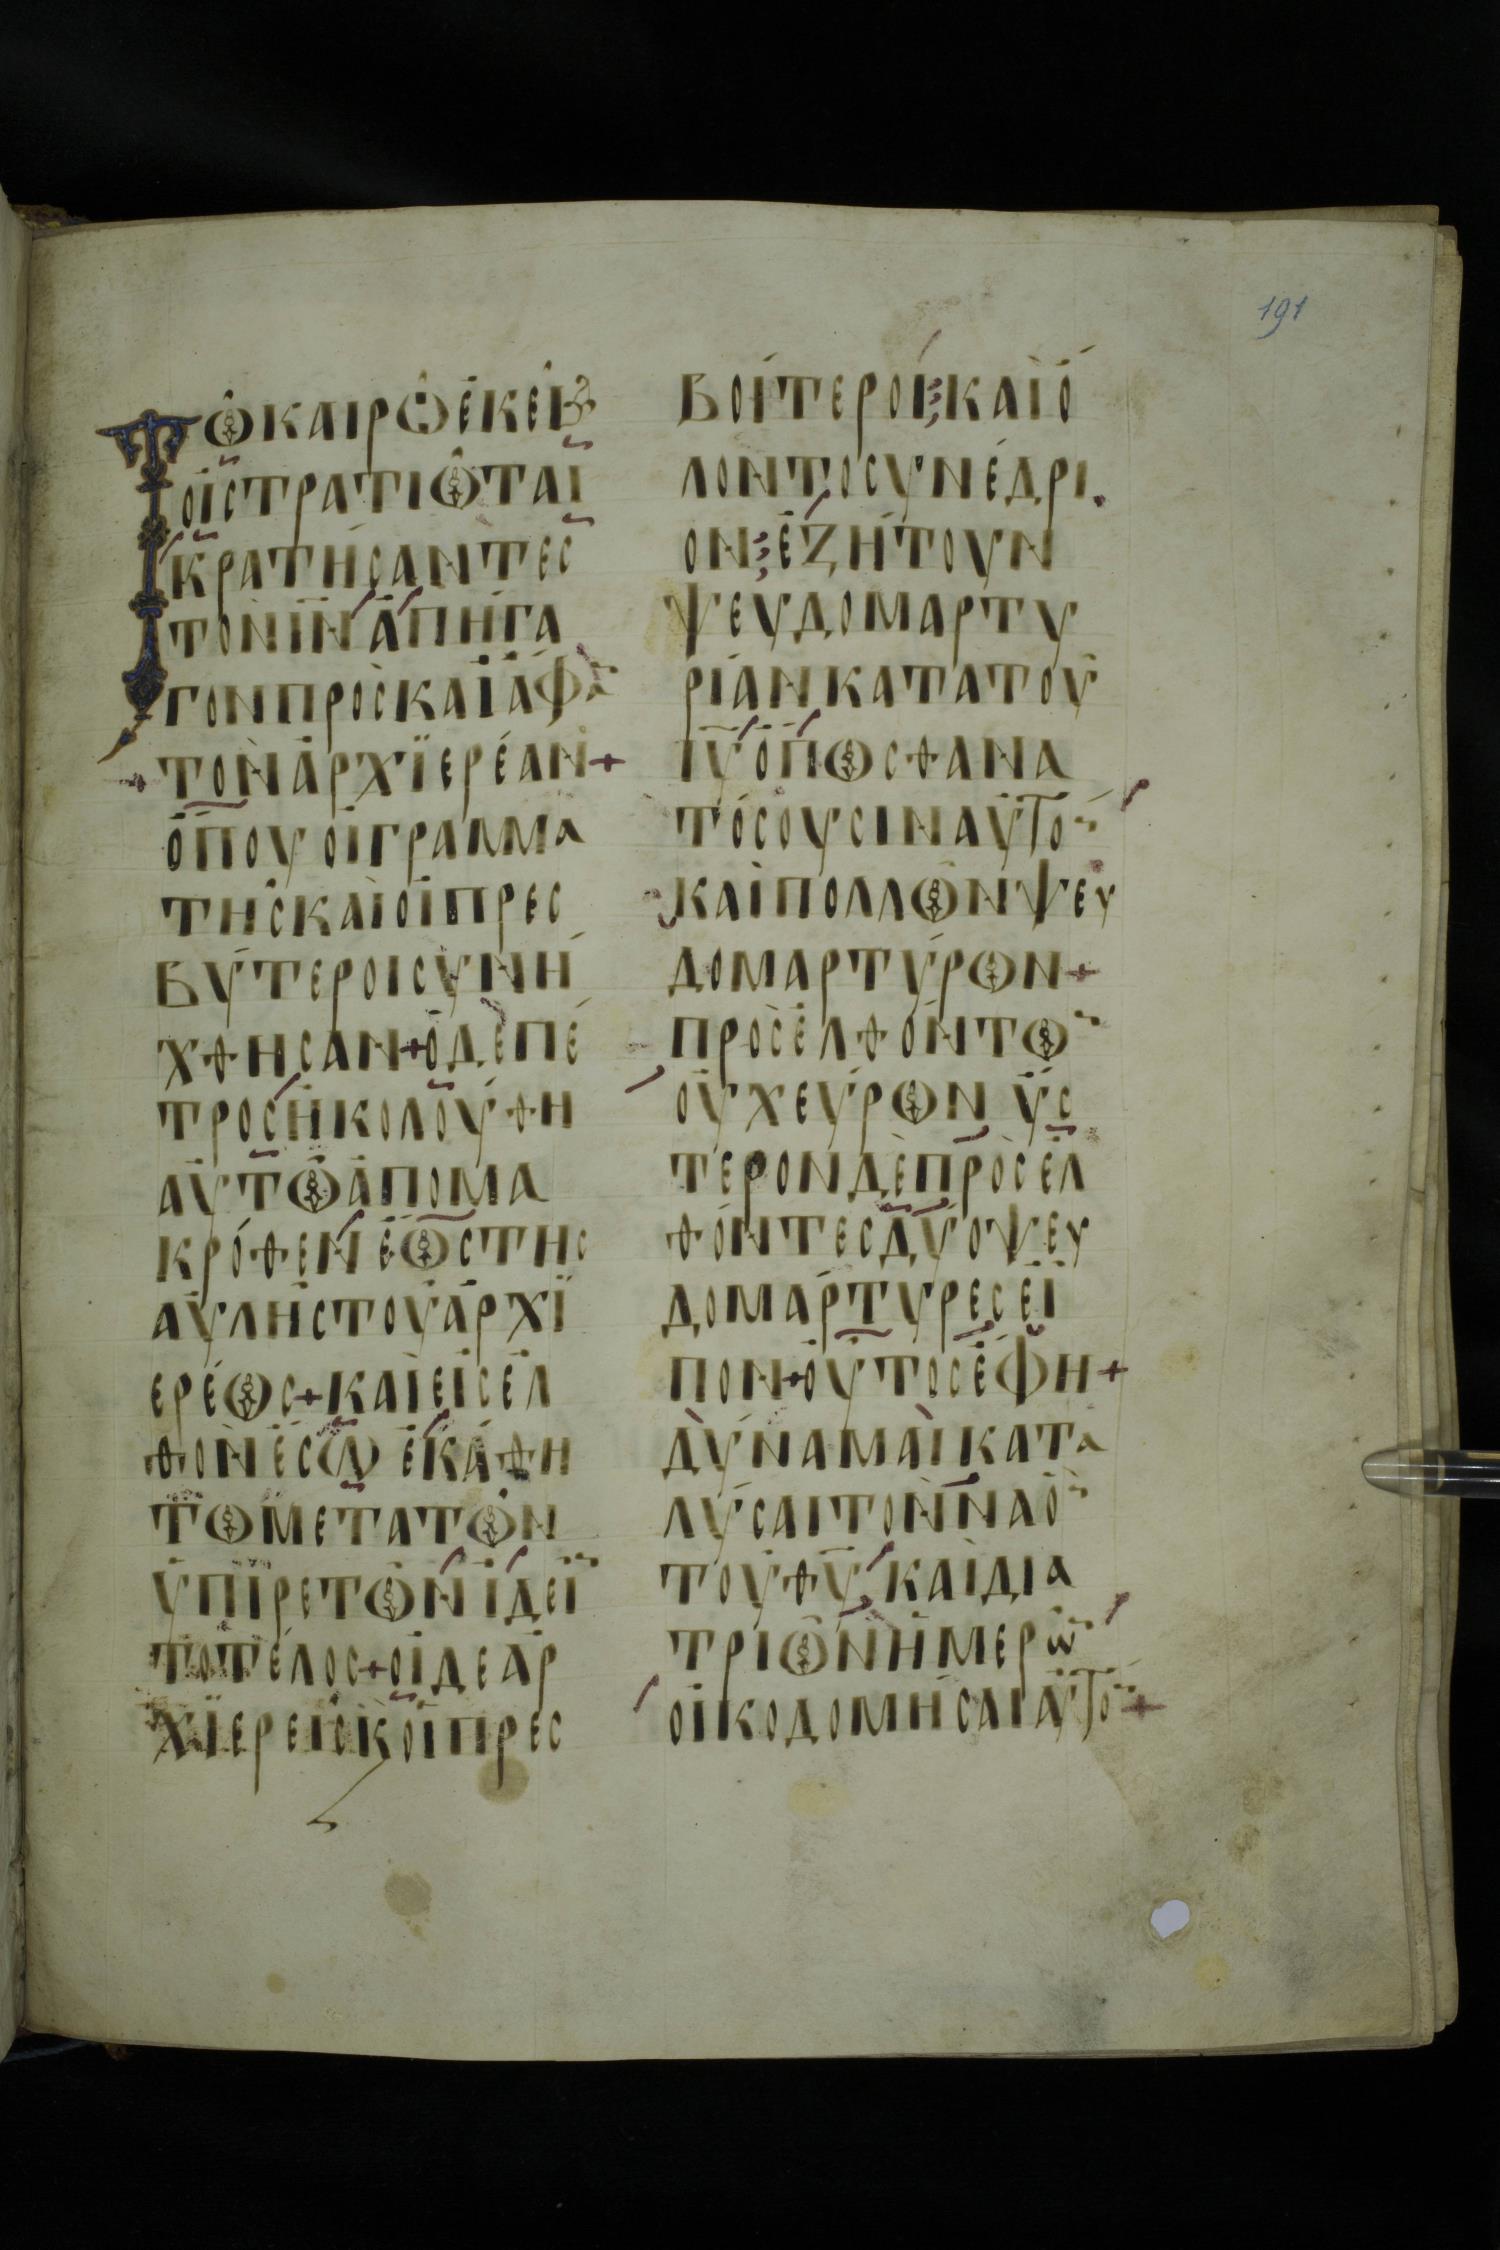 191
Τῶ καιρῶ ἐκεί
οἱ στρατιῶται
κρατήσαντες
τὸν ιν ἀπήγα
γον προς καϊάφα
+ τὸν ἀρχϊερέαν +
ὅπου οἱ γραμμα
τῆς καὶ οἱ πρεσ
βύτεροι συνή
χθησαν + ὁ δὲ πέ
τρος ἠκολούθη
αὐτῶ ἀπο μα
κρόθεν ἑως της
αὐλῆς τοῦ ἀρχϊ
ερέως + καὶ εἰσελ
θὸν ἔσω ἐκάθη
τω μετα τῶν
ὑπιρετῶν ἰδεῖ
το τέλος + οἱ δε ἀρ
χϊερεῖς κ οἱ πρεσ
βοίτεροι καὶ ὅ
λον το συνέδρι
ον ἐζήτουν
ψευδομαρτυ
ρίαν κατα τοῦ
ιυ ὅπως θανα
τόσουσιν αὐτὸ
καὶ πολλῶν ψευ
δομαρτύρων +
προσελθόντω
οὐχ εὑρων ὑσ
τερον δὲ προσελ
θόντες δύο ψευ
δομάρτυρες εἶ
πον + οὗτος ἔφη +
δύναμαι κατα
λύσαι τὸν ναὸ
του θυ καὶ δια
τριῶν ἡμερῶ
οἰκοδομήσαι αὐτὸ +